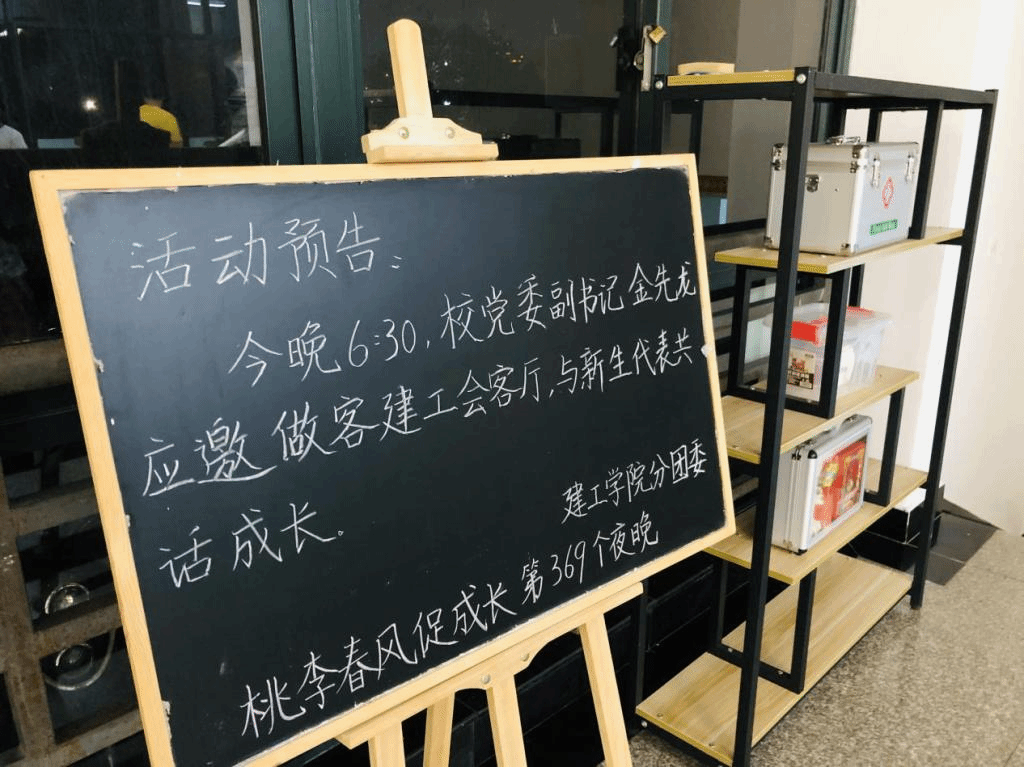 活动预告:
今晚6:30,校党委副书记金先龙
应邀做客建工会客厅,与新生代表共
话成长。
建工学院分团委
桃李春风促成长第369个夜晚